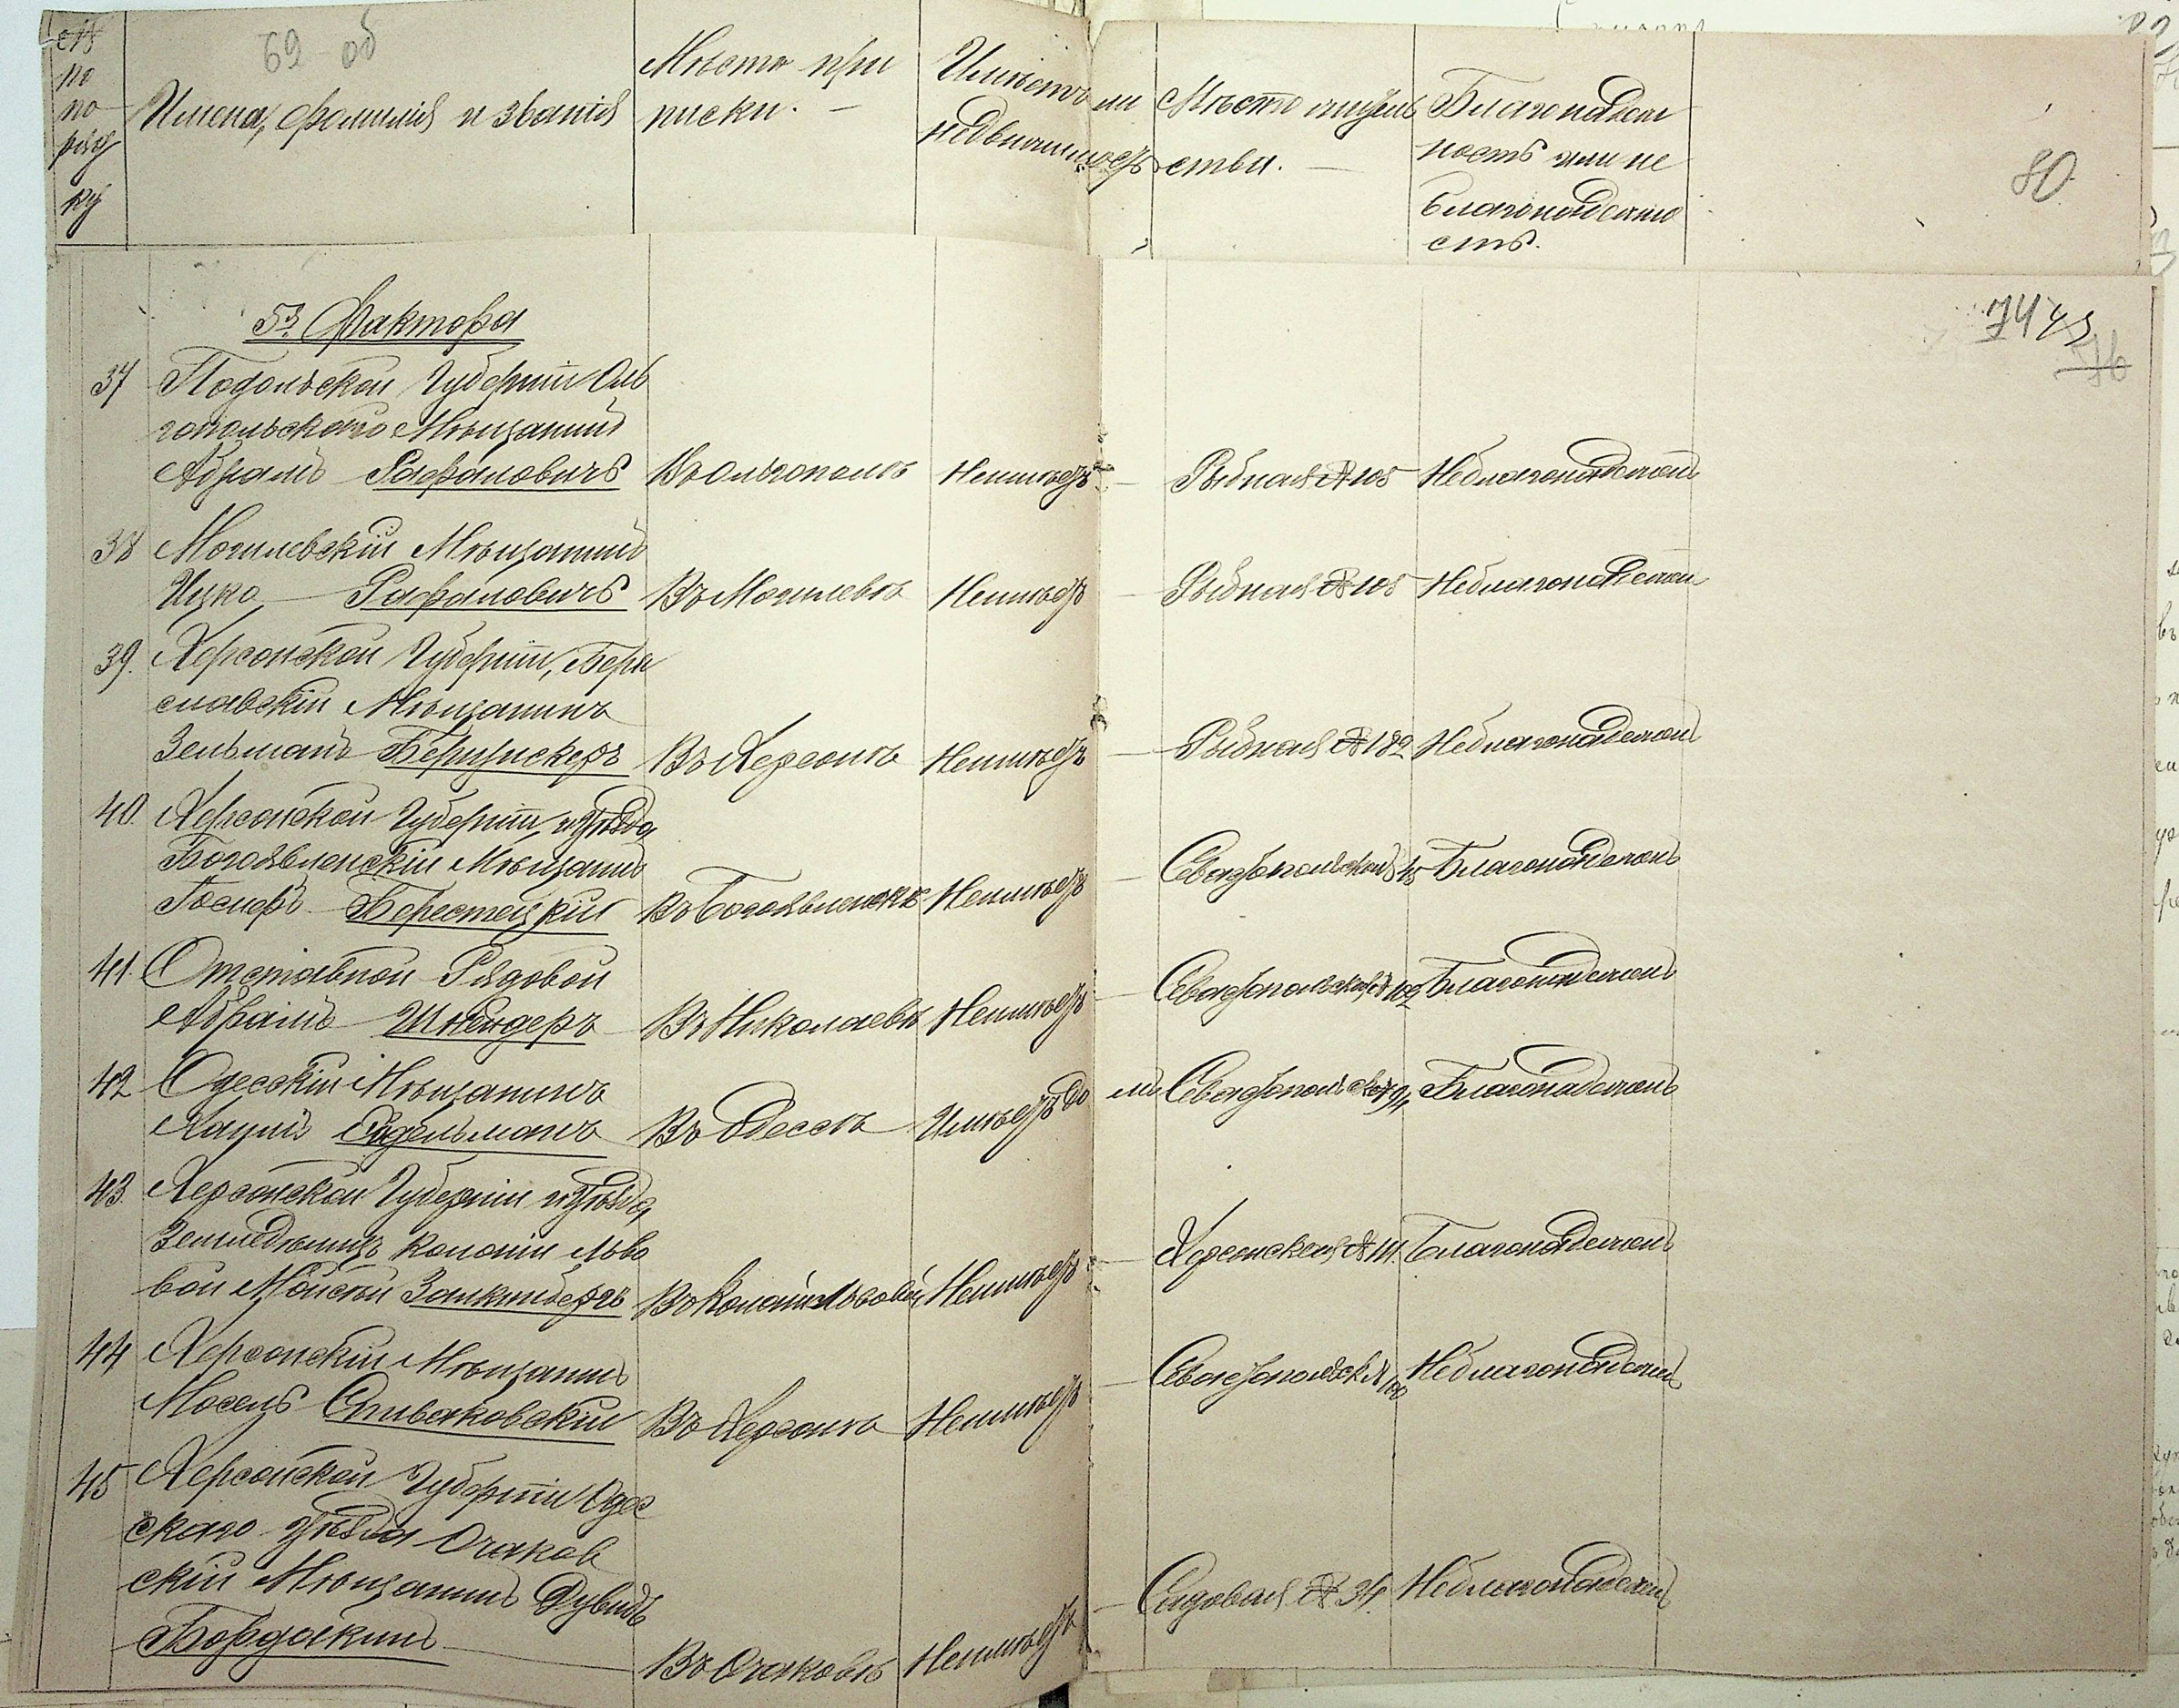 № по по ряд ку
69 об
Имена, фамилія и званія
Мѣсто при
писки. —
Имѣетъ ли
недвижимость
Мѣсто жител
ства. —
Благонадеж
ность или не
благонадежно
сть.
80
5) Фактора
74
37 Подольской Губерніи Оль
гопольскаго Мѣщанинъ
Абрамъ Рафаловичъ Въ Ольгополѣ Неимѣетъ — Рыбная № 105 Неблагонадежнъ
38 Могилевскій Мѣщанинъ
Ицко Рафаловичъ Въ Могилевѣ Неимѣетъ — Рыбная № 105 Неблагонадежнъ
39. Херсонской Губерніи, Бери
славскій Мѣщанинъ
Зельманъ Въ Херсонѣ Неимѣетъ — Рыбная № 182 Неблагонадежнъ
40. Херсонской Губерніи и уѣзда
Богоявленскій Мѣщанинъ
Іосифъ Берестецкій Въ Богоявленскѣ Неимѣетъ — Севастопольская 45 Благонадежнъ
41. Отставной Рядовой
Абрамъ Шнейдеръ Въ Николаевѣ Неимѣетъ — Севастопольск № 102 Благонадежнъ
42 Одесскій Мѣщанинъ
Хаимъ Эйдельманъ Въ Одессѣ Имѣетъ до мъ Севастопольск № 94 Благонадежнъ
43. Херсонской Губерніи и уѣзда
Земледѣлецъ колоніи Льво
вой Мойсей Залкинберъ Въ Колоніи Львовой Неимѣетъ — Херсонская № 111. Благонадежнъ
44 Херсонскій Мѣщанинъ
Мосель Спиваковскій Въ Херсонѣ Неимѣетъ — Севастопольск № 100 Неблагонадежнъ
45 Херсонской Губерніи Одес
скаго уѣзда Очаков
скій Мѣщанинъ Дувидъ
Бордакинъ Въ Очаковѣ Неимѣетъ — Садовая № 34 Неблагонадежнъ